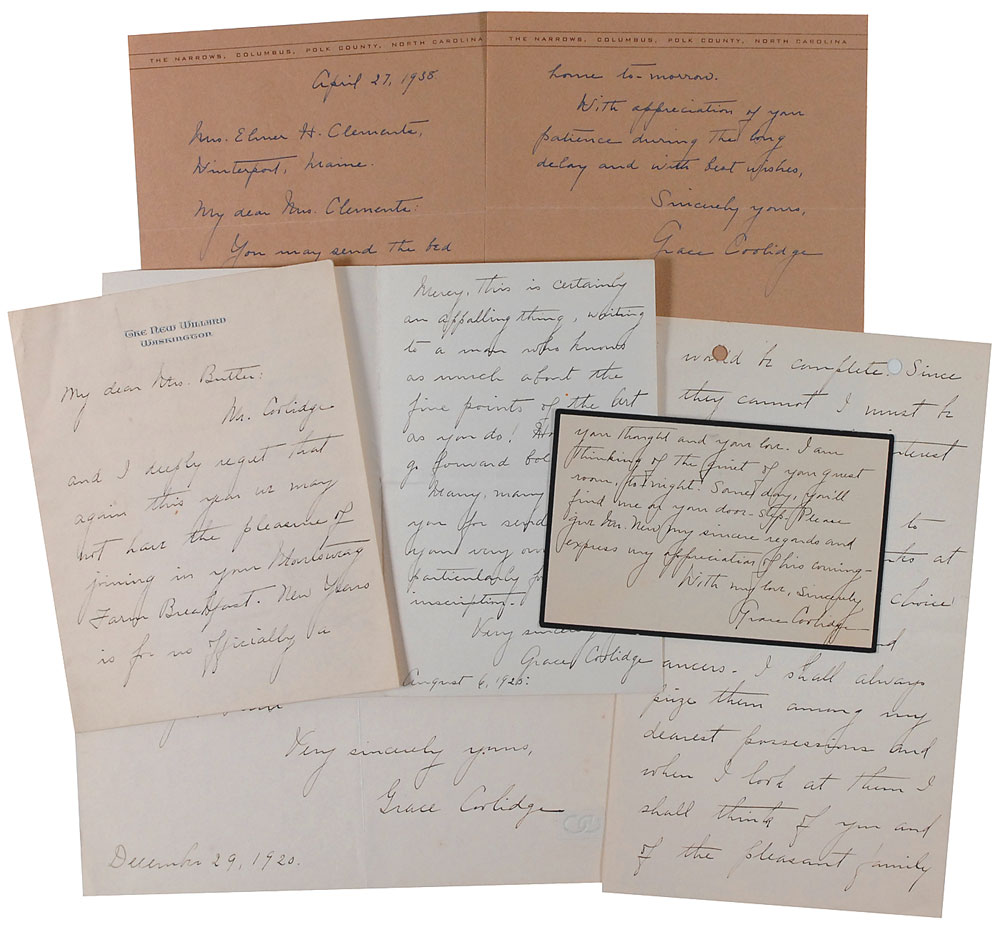 THE NARROWS, COLUMBUS, POLK COUNTY, NORTH CAROLINA
April 27, 1938.
Mrs. Elmer H. Clements,
Winterport, Maine.
My dear Mrs. Clements:
You may send the bed
THE NARROWS, COLUMBUS, POLK COUNTY, NORTH CAROLINA
home to-morrow.
With appreciation of your
patience during the long
delay and with best wishes,
Sincerely yours,
Grace Coolidge
THE NEW WILLARD
WASHINGTON
My dear Mrs. Butler:
Mr. Coolidge
and I deeply regret that
again this year we may
not have the pleasure of
joining in your
Farm Breakfast. New Years
is for us officially a
Mercy, this is certainly
an appalling thing, writing
to a man who knows
as much about the
fine points of the art
as you do!
go forward
Many, many
you for send
your very
particularly
inscription.
Very
Grace Coolidge
August 6, 1925.
would be complete. Since
they cannot I must be
interest
to
at
choice
I shall always
prize them among my
dearest possessions and
when I look at them I
shall think of you and
of the pleasant family
your thought and your love. I am
thinking of the quiet of your guest
room, to-night. Some day, you'll
find me on your door-step. Please
give Mr. New my sincere regards and
express my appreciation of his coming-
With my love, Sincerely
Grace Coolidge
Very sincerely yours,
Grace Coolidge
December 29, 1920.